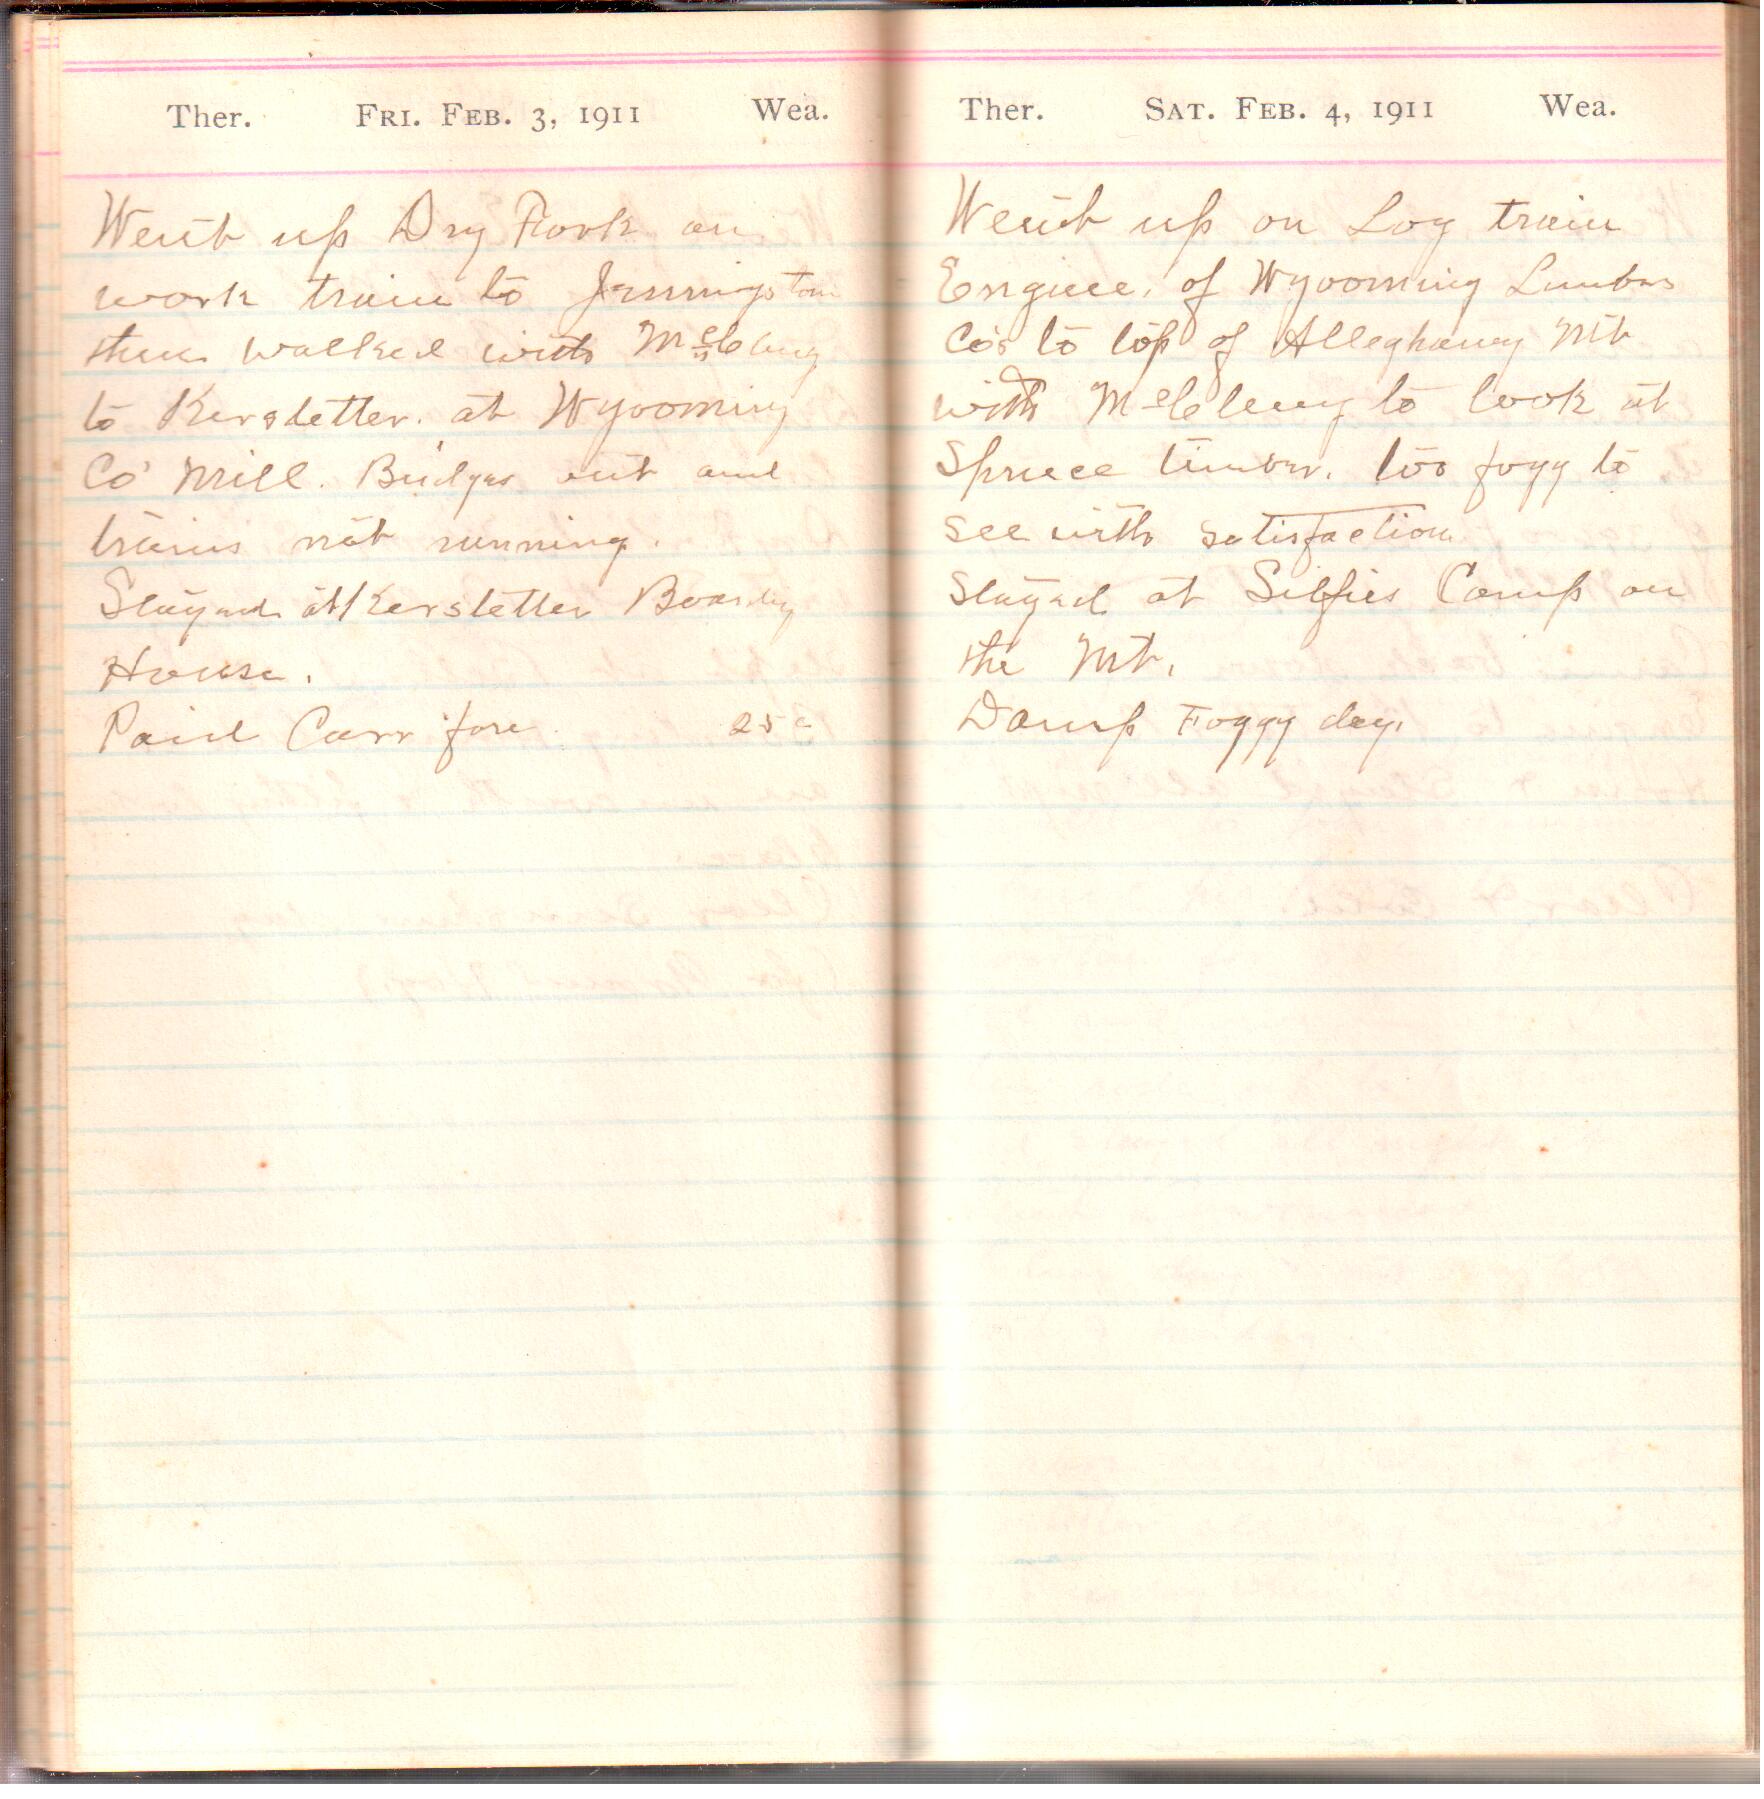 Ther. Fri. Feb. 3, 1911 Wea.
Went up Dry Fork on
work train to Jenningston
then walked with McClung
to Kerstetter. at Wyooming
Co' Mill. Bridges out and
trains not running.
Stayed at Kerstetter Boarding
House.
Paid Carr fare 25c
Ther. Sat. Feb. 4, 1911 Wea.
Went up on Log train
Engine, of Wyooming Lumber
Co's to top of Alleghaney Mt
with McClung to look at
Spruce timber. too fogy to
see with satisfaction
Stayed at Camp on
the Mt.
Damp Foggy day.